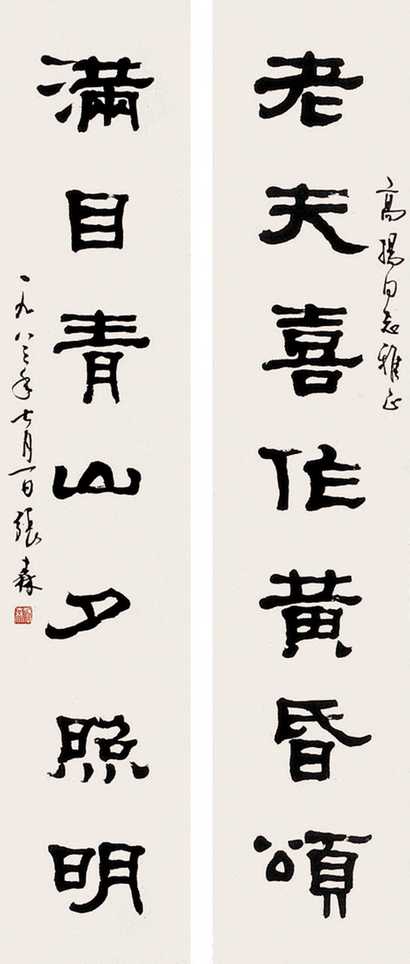 高揚同志雅正
老夫喜作黃昏頌
滿目青山夕照明
一九八三年七月一日張森